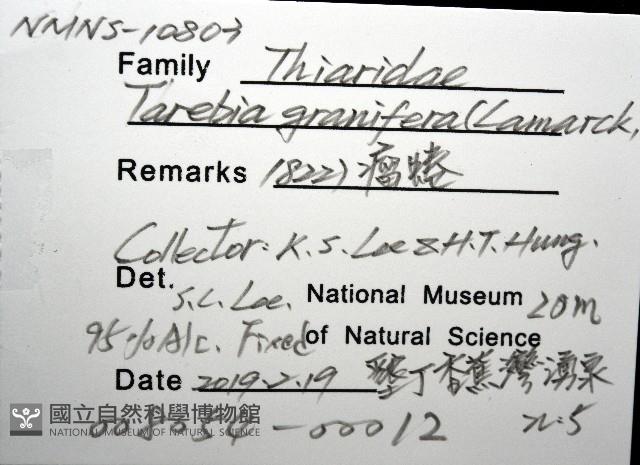 NMNS-10803
Family Thiaridae
Tarebia granifera (Lamarck,
Remarks 1822) 瘤蜷
Collector: K. S. Lee & H.T. Hung.
Det. S.C. Lee. National Museum 20m
95% Alc. Fixed of Natural Science
Date 2019.2.19 墾丁香蕉灣湧泉
國立自然科學博物館
NATIONAL MUSEUM OF NATURAL SCIENCE
-00012 n:5